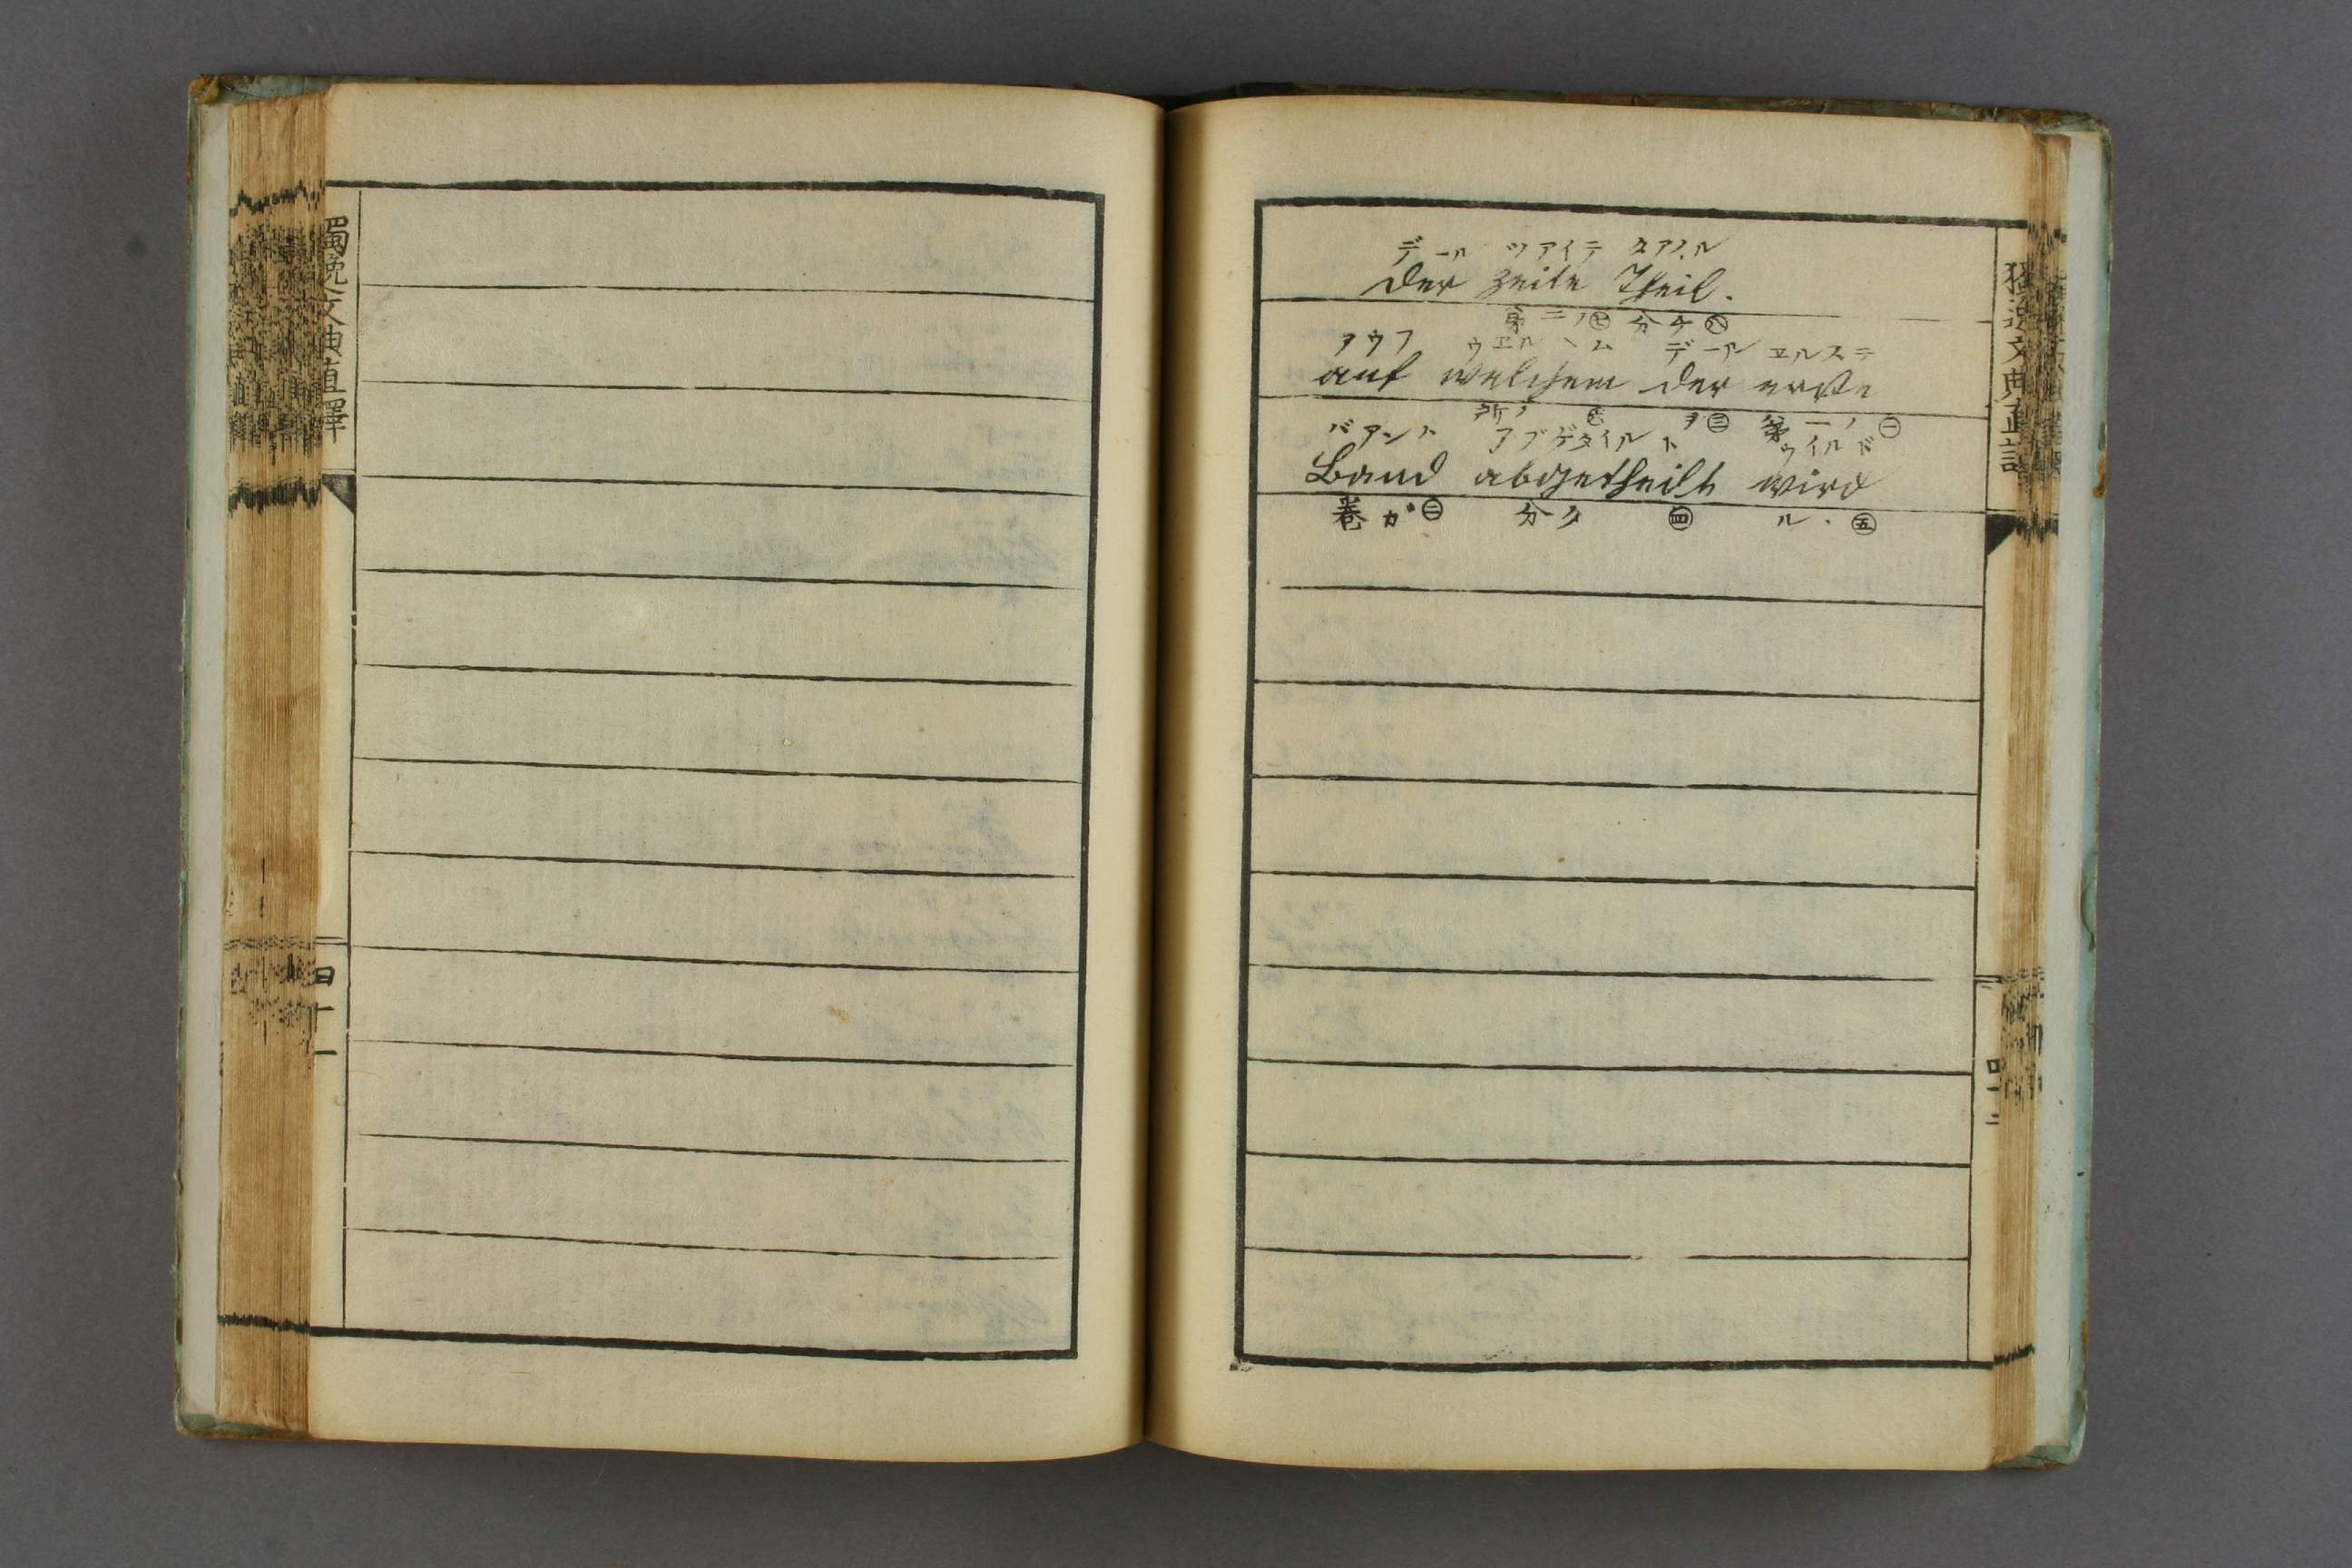 デール ツアイテ タアイル
Der zeite Theil.
第二ノ㊆ 分チ㊅
アウフ ウエルヘム デール エルステ
auf welchem der erste
所ノ ヲ㊂ 第一ノ㊀
バアンド アブゲタイルト ウイルド
Band abgetheilt wird
巻ガ㊁ 分タ ㊃ ル.㊄
獨逸文典直譯
四十二
獨逸文典直譯
四十一